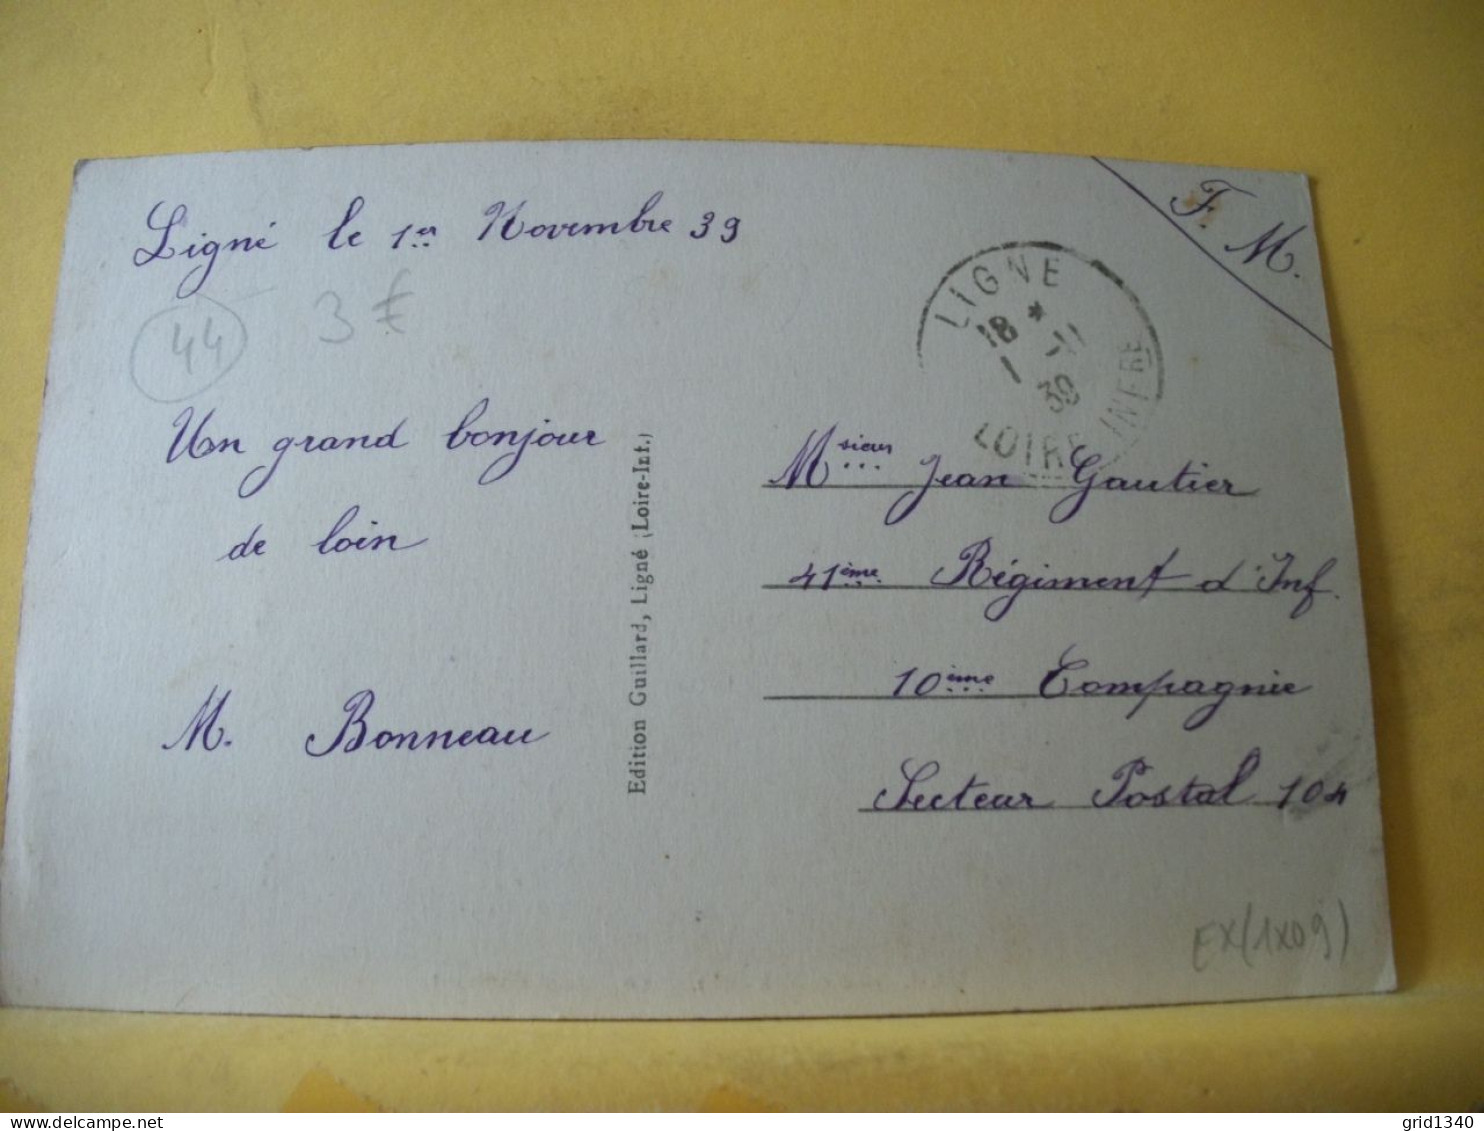 Ligné le 1er Novembre 39
44
3 €
Un grand bonjour
de loin
M. Bonneau
Edition Guillard, Ligné (Loire-Inf.)
F. M.
LIGNE
18 *
1 -11
39
LOIRE INFRE
Msieur Jean Gautier
41ème Régiment d'Inf.
10ème Compagnie
Secteur Postal 104
EX(1X09)
grid1340